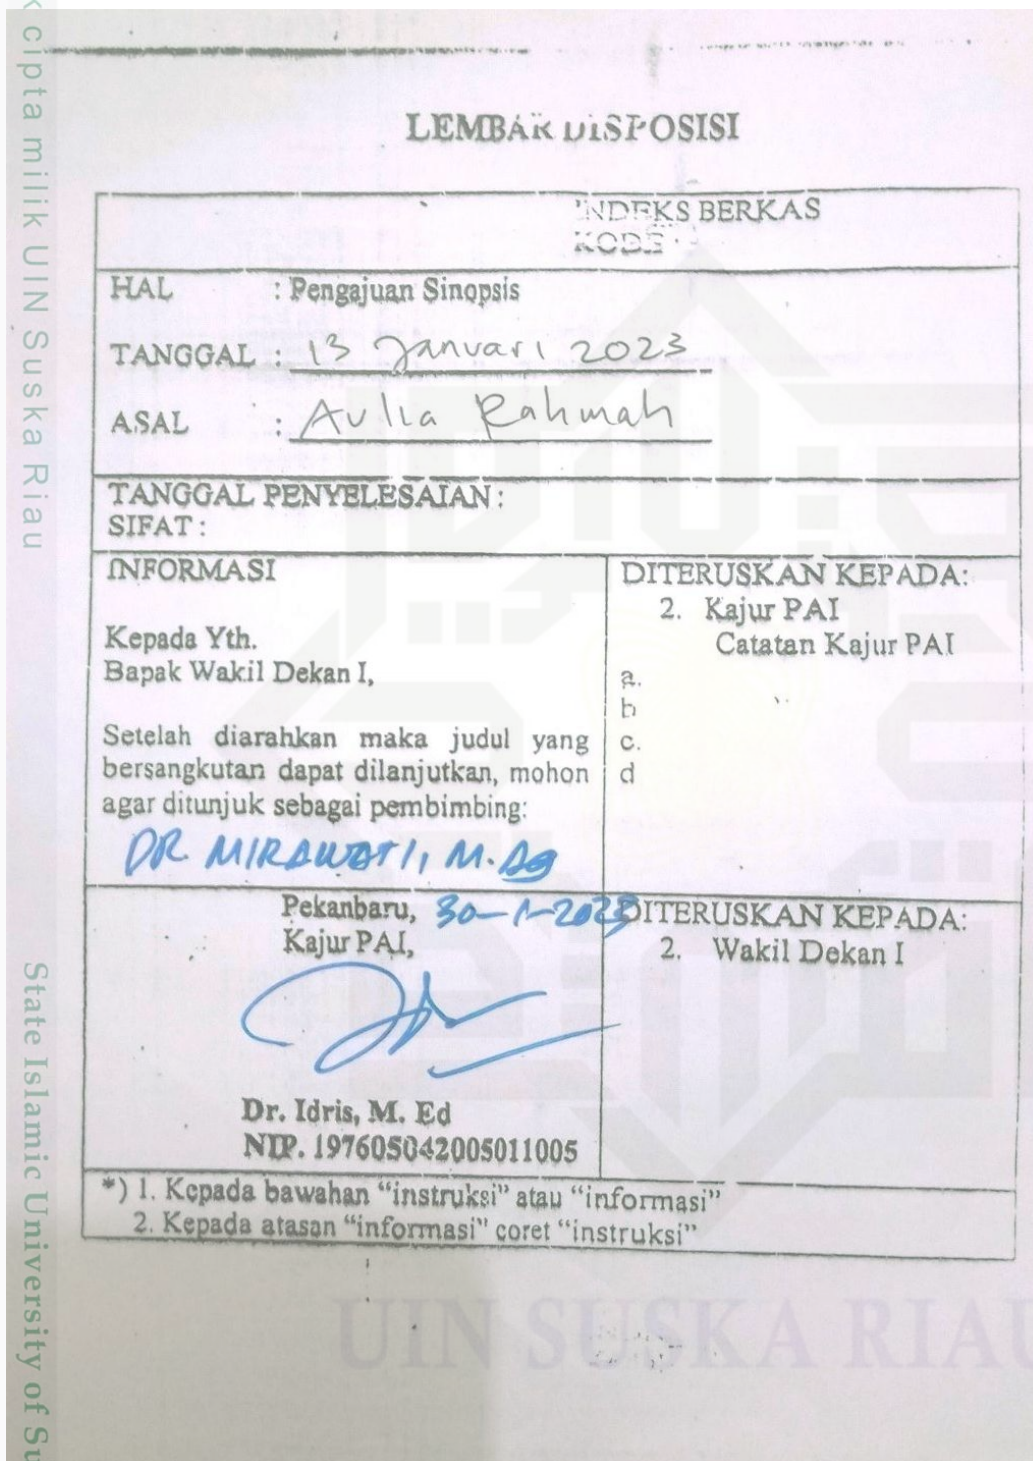 cipta milik UIN Suska Riau
LEMBAR DISPOSISI
INDEKS BERKAS
KODE :
HAL : Pengajuan Sinopsis
TANGGAL : 13 Januari 2023
ASAL : Aulia Rahmah
TANGGAL PENYELESAIAN :
SIFAT :
INFORMASI
Kepada Yth.
Bapak Wakil Dekan I,
Setelah diarahkan maka judul yang
bersangkutan dapat dilanjutkan, mohon
agar ditunjuk sebagai pembimbing:
DR. MIRAWATI, M.Ag
DITERUSKAN KEPADA:
2. Kajur PAI
Catatan Kajur PAI
a.
b
c.
d
Pekanbaru, 30-1-2023
Kajur PAI,
Dr. Idris, M. Ed
NIP. 197605042005011005
DITERUSKAN KEPADA:
2. Wakil Dekan I
*) 1. Kepada bawahan “instruksi” atau “informasi”
2. Kepada atasan “informasi” coret “instruksi”
UIN SUSKA RIAU
State Islamic University of Su